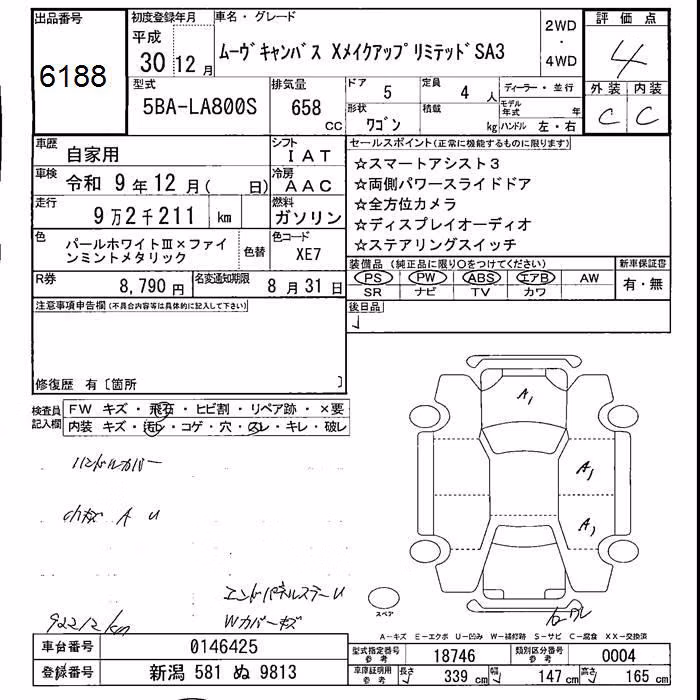 出品番号
6188
初度登録年月
平成
30 12月
車名・グレード
ムーヴキャンバス Xメイクアップリミテッド SA3
2WD
・
4WD
評価点
4
外装 内装
C C
型式
5BA-LA800S
排気量
658
CC
ドア
5
定員
4 人
形状
ワゴン
積載
kg
ディーラー・並行
モデル年式 年
ハンドル 左・右
車歴
自家用
シフト
IAT
車検
令和 9年12月( 日)
冷房
AAC
走行
9万2千211 km
燃料
ガソリン
色
パールホワイトⅢ×ファインミントメタリック
色替
色コード
XE7
R券
8,790円
名変通知期限
8月31日
セールスポイント(正常に機能するものに限ります)
☆スマートアシスト3
☆両側パワースライドドア
☆全方位カメラ
☆ディスプレイオーディオ
☆ステアリングスイッチ
装備品(純正品に限り○をつけてください)
PS PW ABS エアB AW
SR ナビ TV カワ
新車保証書
有・無
後日品
注意事項申告欄(不具合内容等は具体的に記入して下さい)
修復歴 有〔箇所 〕
検査員記入欄
FW キズ・飛石・ヒビ割・リペア跡・×要
内装 キズ・汚レ・コゲ・穴・スレ・キレ・破レ
ハンドルカバー
小キズ A U
エンドパネルステーU
Wカバーキズ
92212km
A1
A1
A1
スペア
A-キズ E-エクボ U-凹み W-補修跡 S-サビ C-腐食 XX-交換済
車台番号
0146425
登録番号
新潟 581 ぬ 9813
型式指定番号
参考
18746
類別区分番号
参考
0004
車庫証明用
参考
長さ
339 cm
幅
147 cm
高さ
165 cm